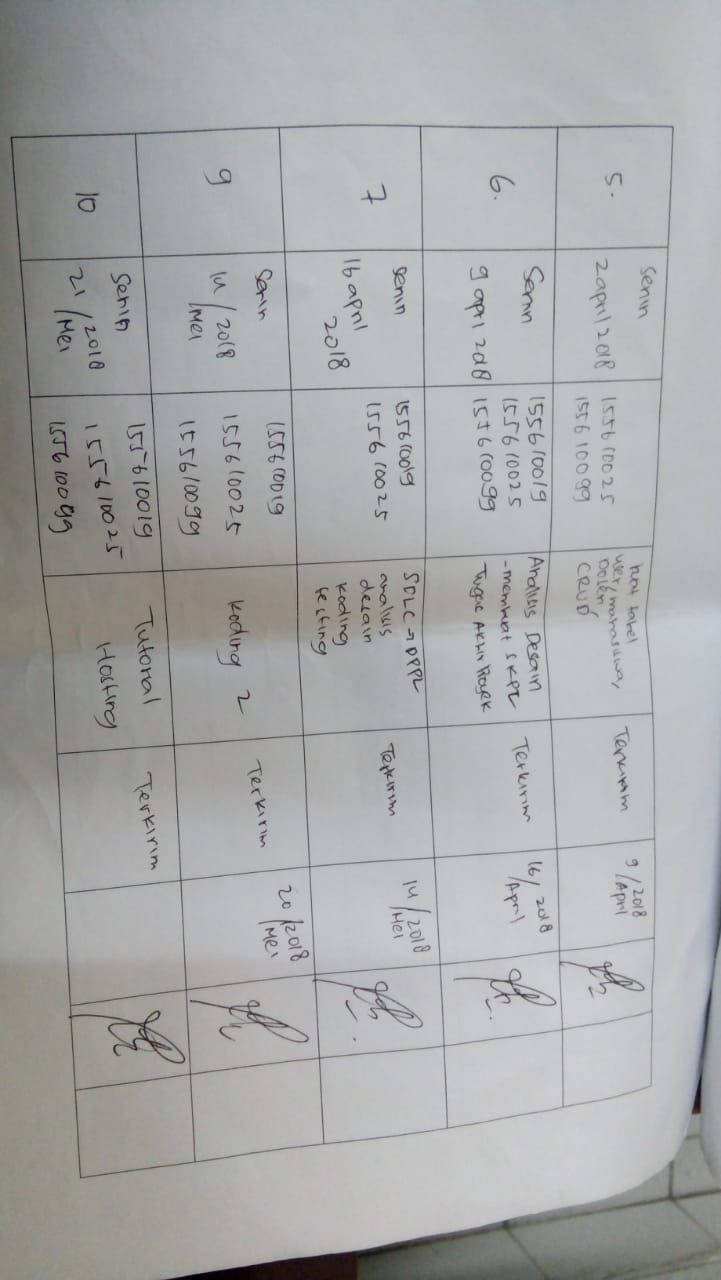 5.
Senin
2 april 2018
155610025
155610099
buat tabel
user mahasiswa,
Dosen
CRUD
Terkirim
9/2018
April
6.
Senin
9 april 2018
155610019
155610025
155610099
Analisis Desain
-membuat SKPL
Tugas Akhir Proyek
Terkirim
16/2018
April
7
Senin
16 april
2018
155610019
155610025
SDLC → DPPL
analisis
desain
koding
testing
Terkirim
14/2018
Mei
9
Senin
14/2018
Mei
155610019
155610025
155610099
Koding 2
Terkirim
20/2018
Mei
10
Senin
21/2018
Mei
155610019
155610025
155610099
Tutorial
Hosting
Terkirim